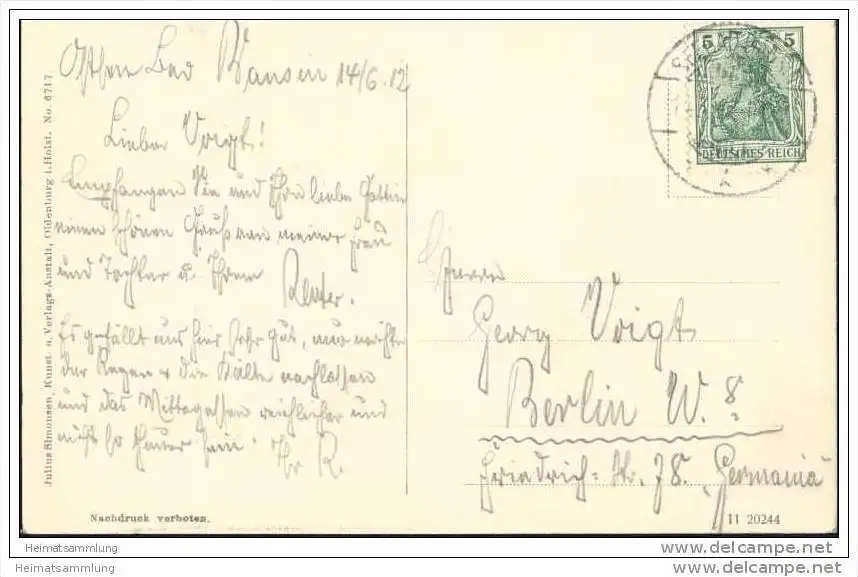 Ostsee Bad Bansin 14/6.12
Lieber Voigt!
Empfangen Sie und Ihre liebe Gattin
einen schönen Gruß von meiner Frau
und Tochter u. Ihrem Reuter.
Es gefällt uns hier sehr gut, nur möchte
der Regen & die Kälte nachlassen
und das Mittagessen reichlicher und
nicht so theuer sein. Ihr R.
Herrn
Georg Voigt
Berlin W. 8
Friedrich-Str. 78. "Germania"
5 5
DEUTSCHES REICH
Julius Simonsen, Kunst- u. Verlags-Anstalt, Oldenburg i. Holst. No. 6717
Nachdruck verboten.
11 20244
Heimatsammlung
Heimatsammlung
http://www.heimatsammlung.de
http://www.heimatsammlung.de